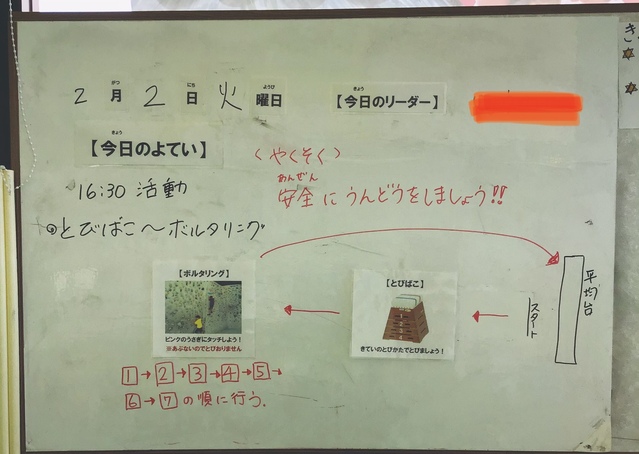 2月2日火曜日 【今日のリーダー】
【今日のよてい】
16:30 活動
⦿とびばこ〜ボルタリング
〈やくそく〉
安全にうんどうをしましょう!!
【ボルタリング】
ピンクのうさぎにタッチしよう！
※あぶないのでとびおりません
【とびばこ】
きていのとびかたでとびましょう！
スタート
平均台
1→2→3→4→5→
6→7の順に行う.
き